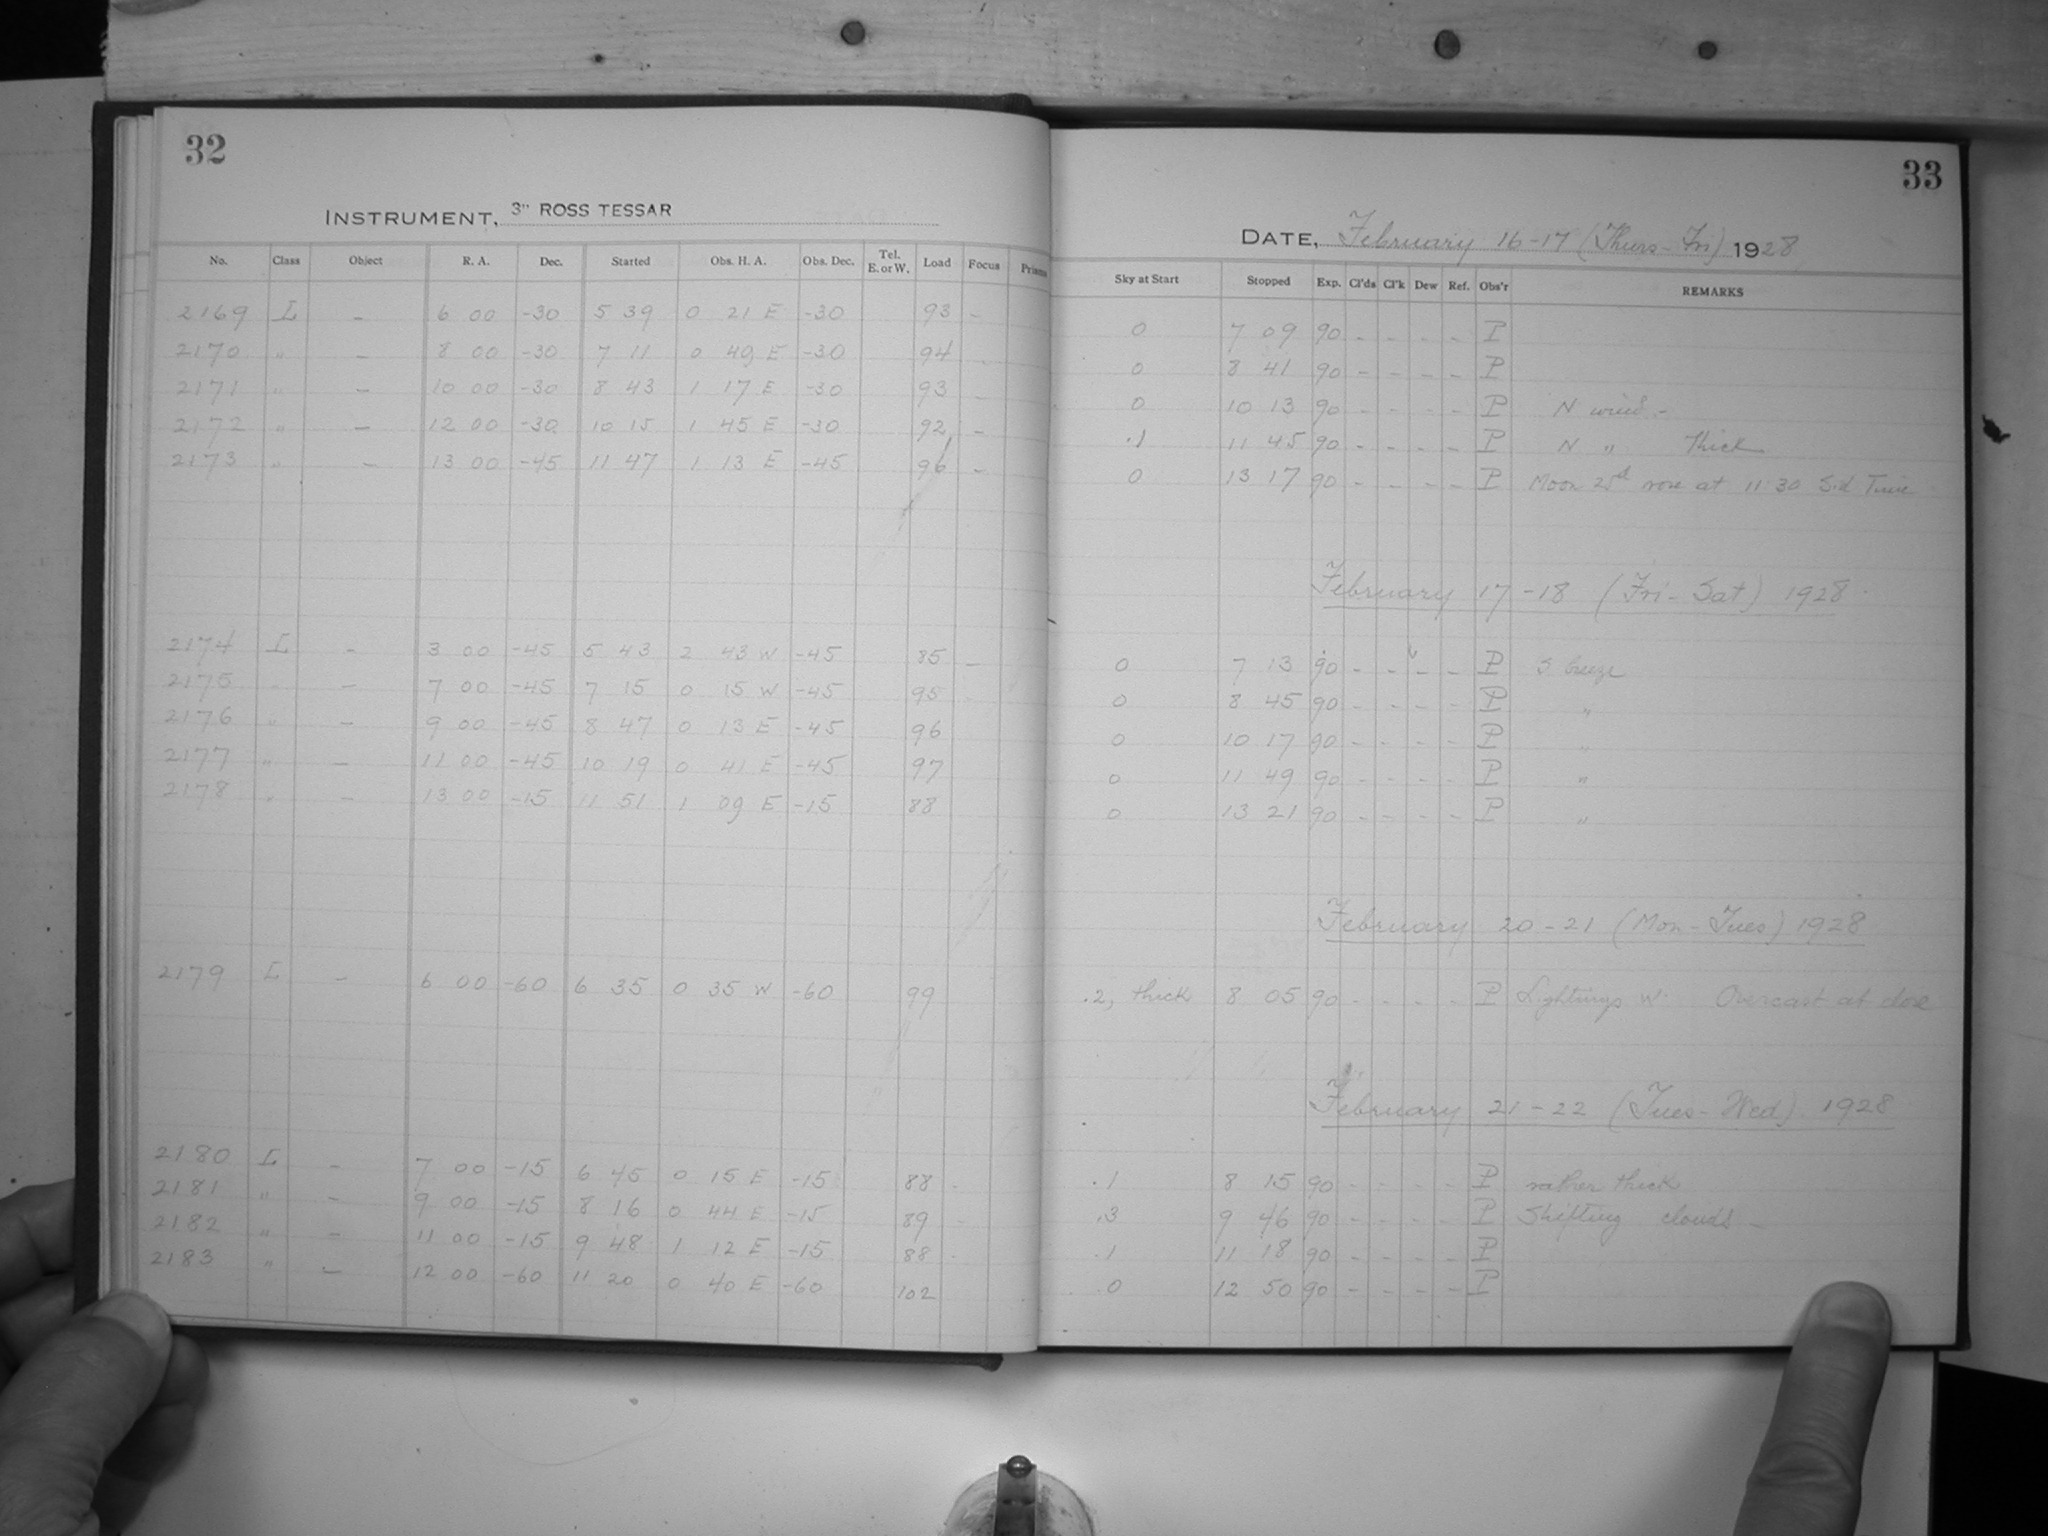 32
INSTRUMENT, 3" ROSS TESSAR
No. Class Object R. A. Dec. Started Obs. H. A. Obs. Dec. Tel. E. or W. Load Focus Prisms
2169 L – 6 00 -30 5 39 0 21 E -30 93 -
2170 " – 8 00 -30 7 11 0 49 E -30 94 -
2171 " – 10 00 -30 8 43 1 17 E -30 93 -
2172 " – 12 00 -30 10 15 1 45 E -30 92 -
2173 " – 13 00 -45 11 47 1 13 E -45 96 -
2174 L – 3 00 -45 5 43 2 43 W -45 85 -
2175 " – 7 00 -45 7 15 0 15 W -45 95
2176 " – 9 00 -45 8 47 0 13 E -45 96
2177 " – 11 00 -45 10 19 0 41 E -45 97
2178 " – 13 00 -15 11 51 1 09 E -15 88
2179 L – 6 00 -60 6 35 0 35 W -60 99
2180 L – 7 00 -15 6 45 0 15 E -15 88 -
2181 " – 9 00 -15 8 16 0 44 E -15 89 -
2182 " – 11 00 -15 9 48 1 12 E -15 88 -
2183 " – 12 00 -60 11 20 0 40 E -60 102
33
DATE, February 16-17 (Thurs-Fri) 1928
Sky at Start Stopped Exp. Cl'ds Cl'k Dew Ref. Obs'r REMARKS
0 7 09 90 - - - - P
0 8 41 90 - - - - P
0 10 13 90 - - - - P N wind -
.1 11 45 90 - - - - P N " Thick
0 13 17 90 - - - - P Moon rose at 11 30 Sid Time
February 17-18 (Fri-Sat) 1928
0 7 13 90 - - - - P S breeze
0 8 45 90 - - - - P "
0 10 17 90 - - - - P "
0 11 49 90 - - - - P "
0 13 21 90 - - - - P "
February 20-21 (Mon-Tues) 1928
.2, thick 8 05 90 - - - - P Lightnings W. Overcast at close
February 21-22 (Tues-Wed) 1928
.1 8 15 90 - - - - P rather thick
.3 9 46 90 - - - - P Shifting clouds -
.1 11 18 90 - - - - P
0 12 50 90 - - - - P